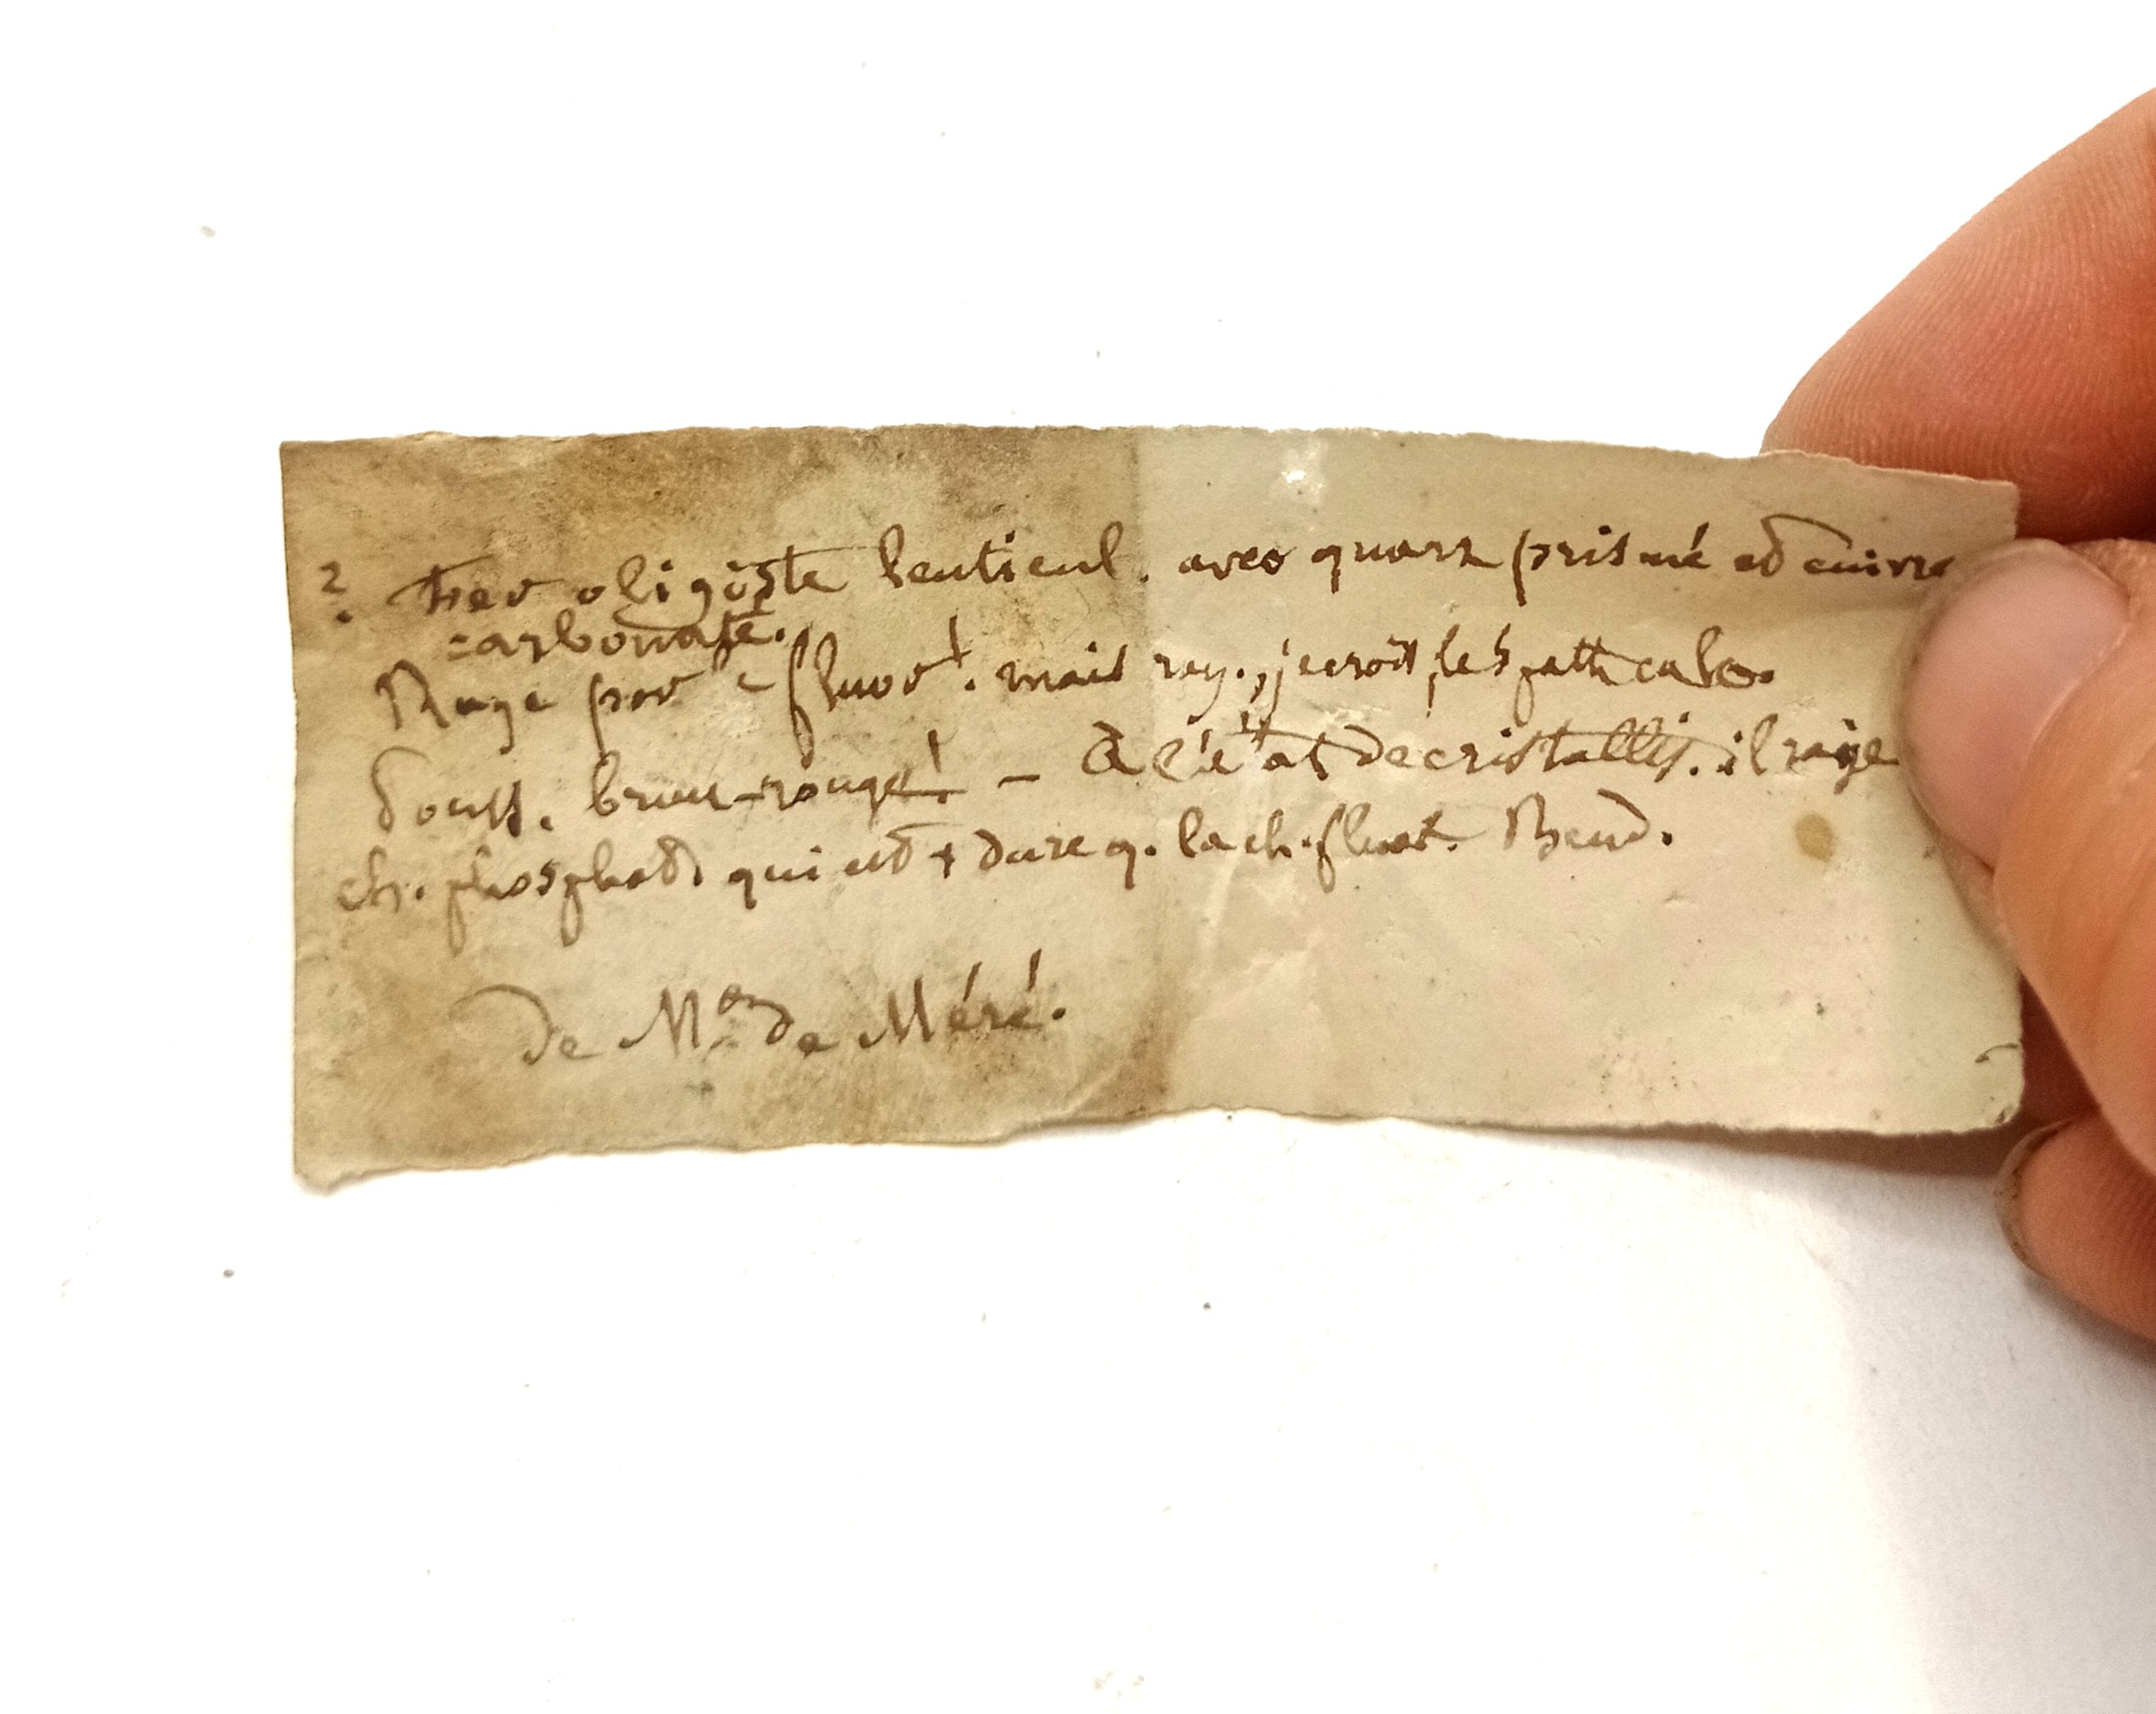 ? Fer oligiste lenticul. avec quarz prismé et cuivre
carbonaté.
Raye par le fluor! mais ray., je crois, le spath calc.
Pouss. brun-rouge! — à l'état de cristallis. il raye
ch. phosphat. qui est + dure q. la ch. fluat. Beud.
De Mon de Méré.